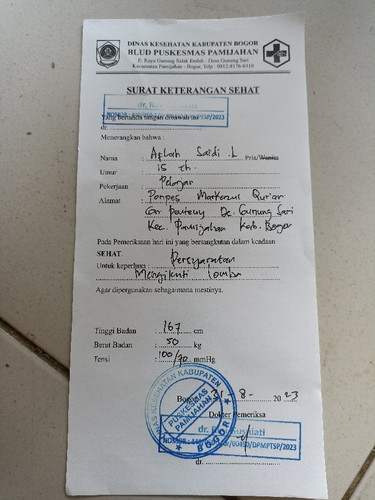 DINAS KESEHATAN KABUPATEN BOGOR
BLUD PUSKESMAS PAMIJAHAN
Jl. Raya Gunung Salak Endah - Desa Gunung Sari
Kecamatan Pamijahan - Bogor, Telp : 0812-8176-6310
SURAT KETERANGAN SEHAT
Yang bertanda tangan dibawah ini
dr.
NOMOR /DPMPTSP/2023
dr.
Menerangkan bahwa :
Nama : Aflah Saidi .L Pria/Wanita
Umur : 15 th.
Pekerjaan : Pelajar
Alamat : Ponpes Markazul Qur'an
Ds. Gunung Sari
Kec. Pamijahan Kab. Bogor
Pada Pemeriksaan hari ini yang bersangkutan dalam keadaan
SEHAT.
Untuk keperluan : Persyaratan
Mengikuti lomba
Agar dipergunakan sebagaimana mestinya.
Tinggi Badan : 167 cm
Berat Badan : 50 kg
Tensi : 100/70 mmHg
DINAS KESEHATAN KABUPATEN
PUSKESMAS
PAMIJAHAN
BOGOR
Bogor, 31 - 8 - 2023
Dokter Pemeriksa
dr.
NOMOR : /DPMPTSP/2023
dr.